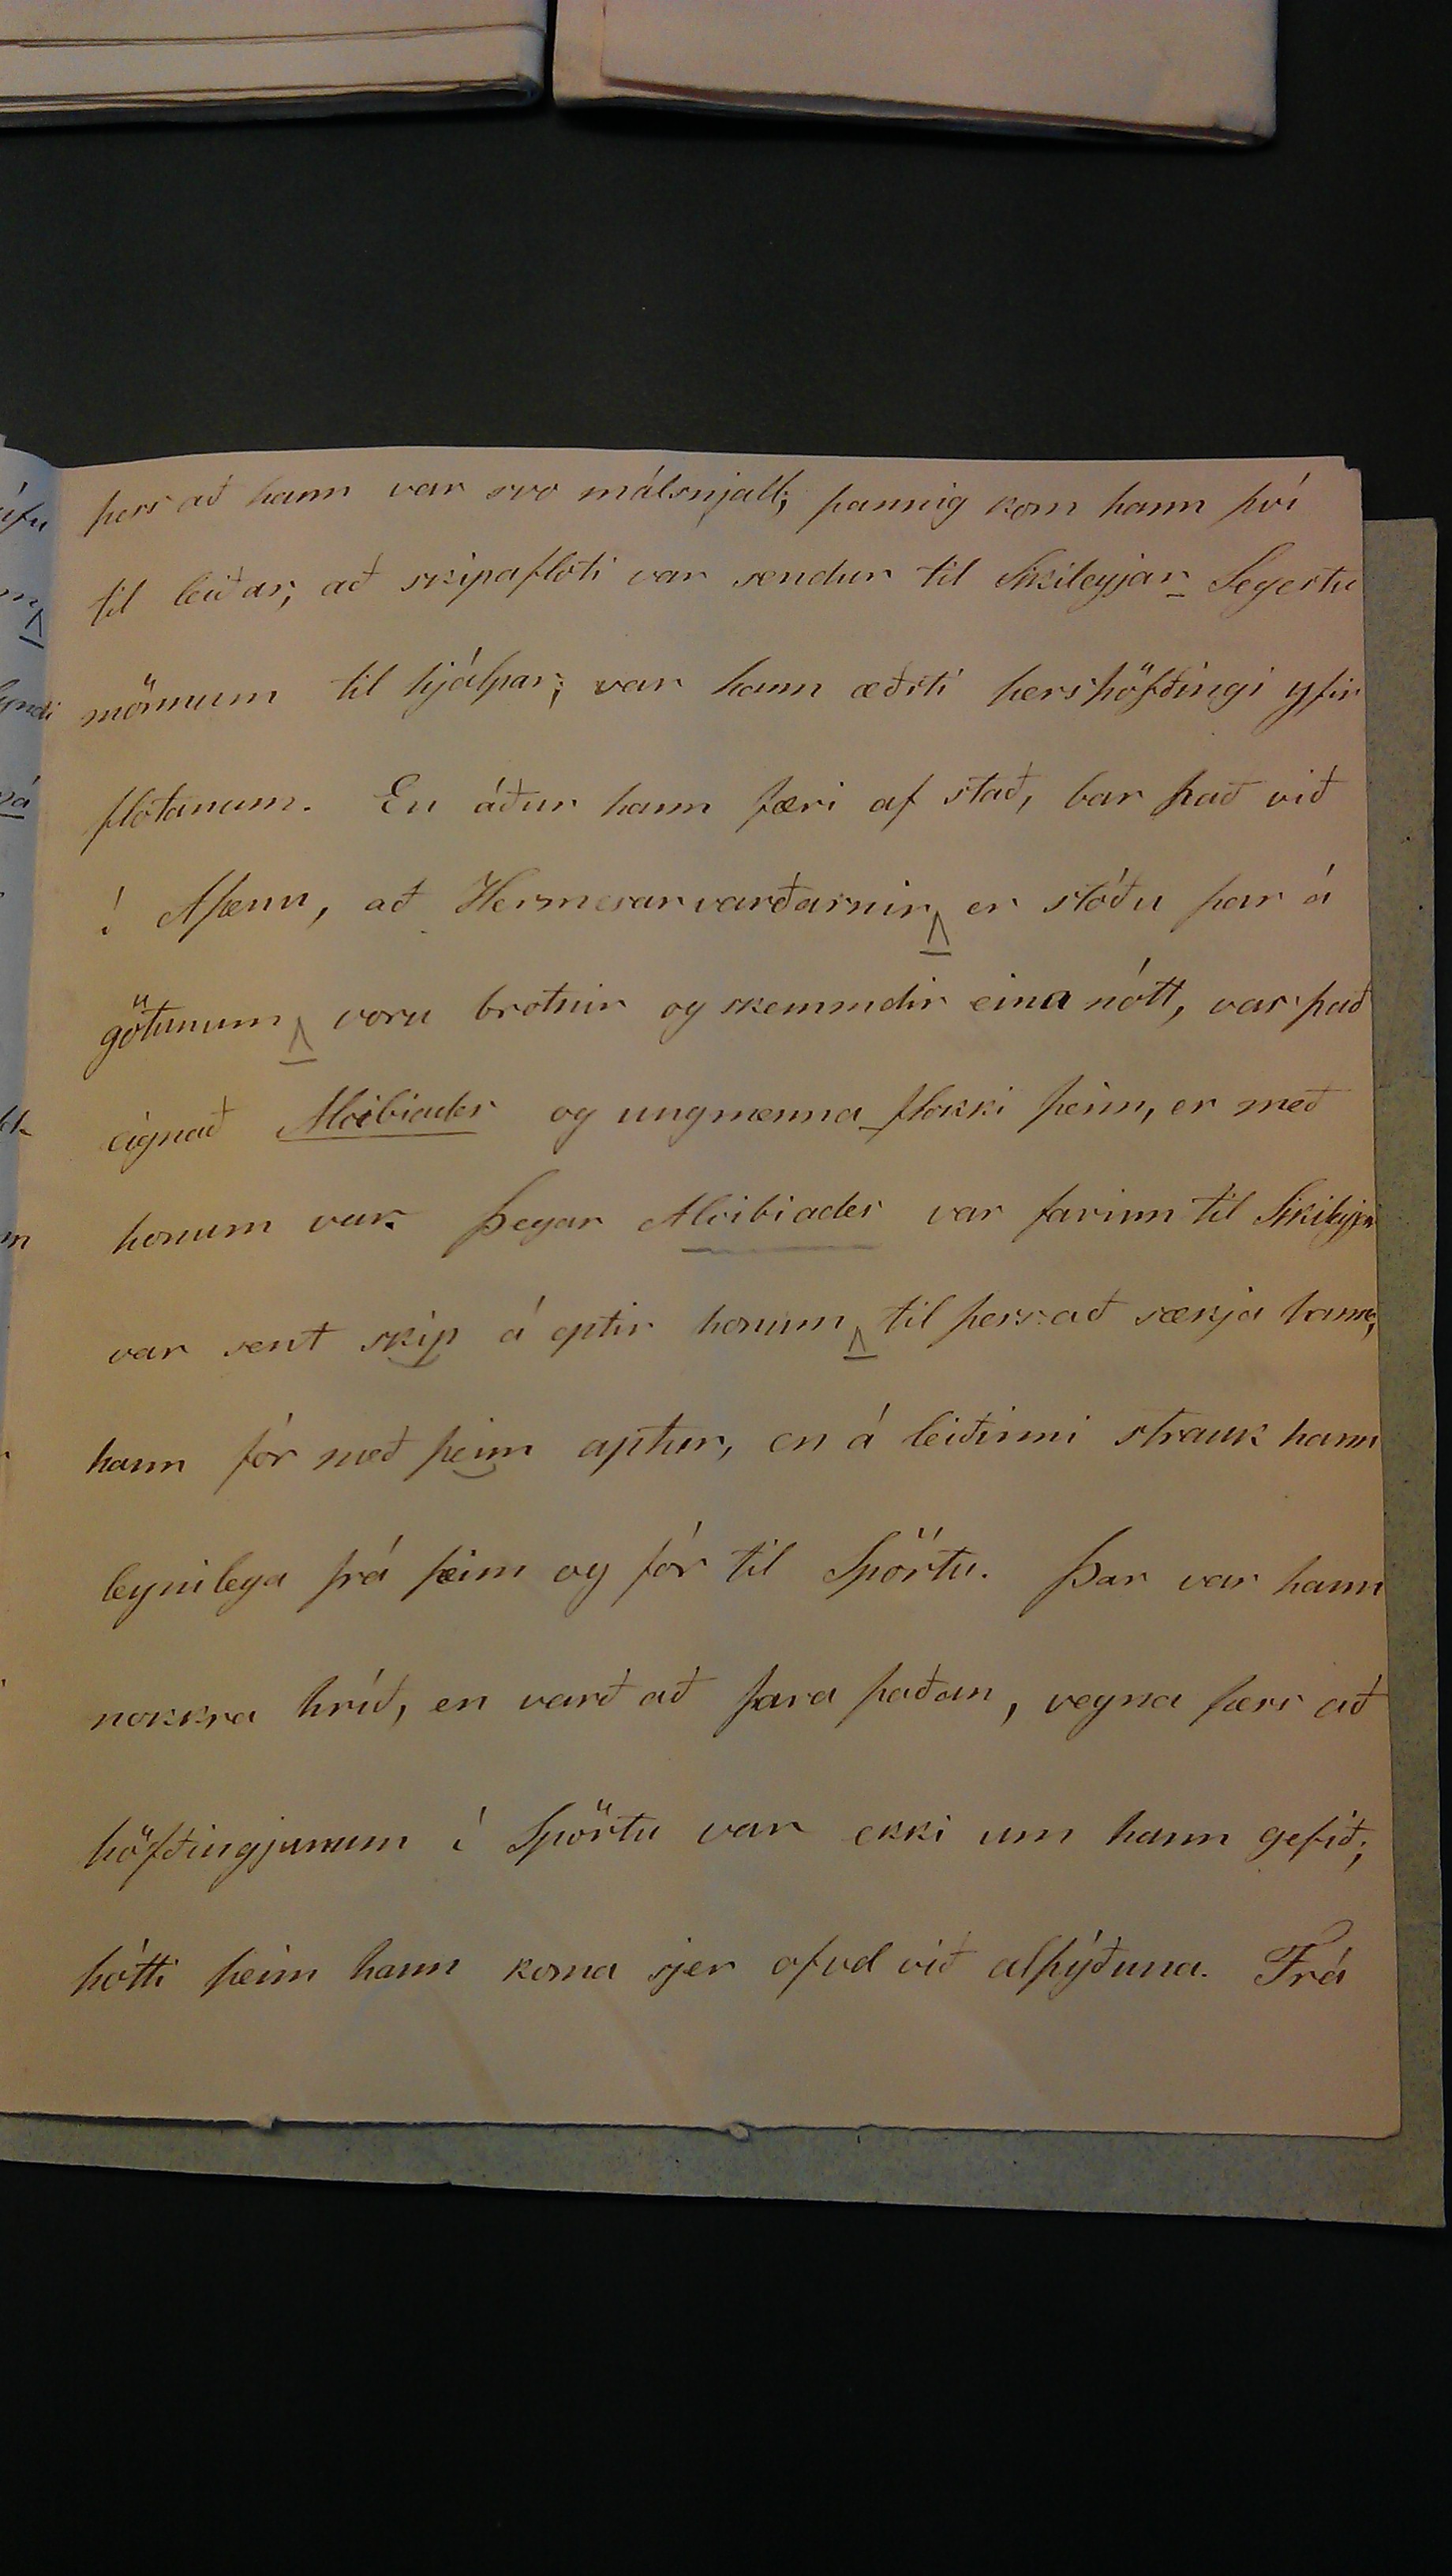 þess að hann var svo málsnjall; þannig kom hann því
til leiðar, að skipafloti var sendur til Sikileyjar Segestu
mönnum til hjálpar; var hann æðsti hershöfðingi yfir
flotanum. En áður hann færi af stað, bar það við
í Aþenu, að Hermesarvarðarnir er stóðu þar á
götunum voru brotnir og skemmdir eina nótt, var það
eignað Alcibiades og ungmenna flokki þeim, er með
honum var. Þegar Alcibiades var farinn til Sikileyjar
var sent skip á eptir honum til þess að sækja hann,
hann fór með þeim aptur, en á leiðinni strauk hann
leynilega frá þeim og fór til Spörtu. Þar var hann
nokkra hríð, en varð að fara þaðan, vegna þess að
höfðingjunum í Spörtu var ekki um hann gefið;
þótti þeim hann koma sjer ofvel við alþýðuna. Frá